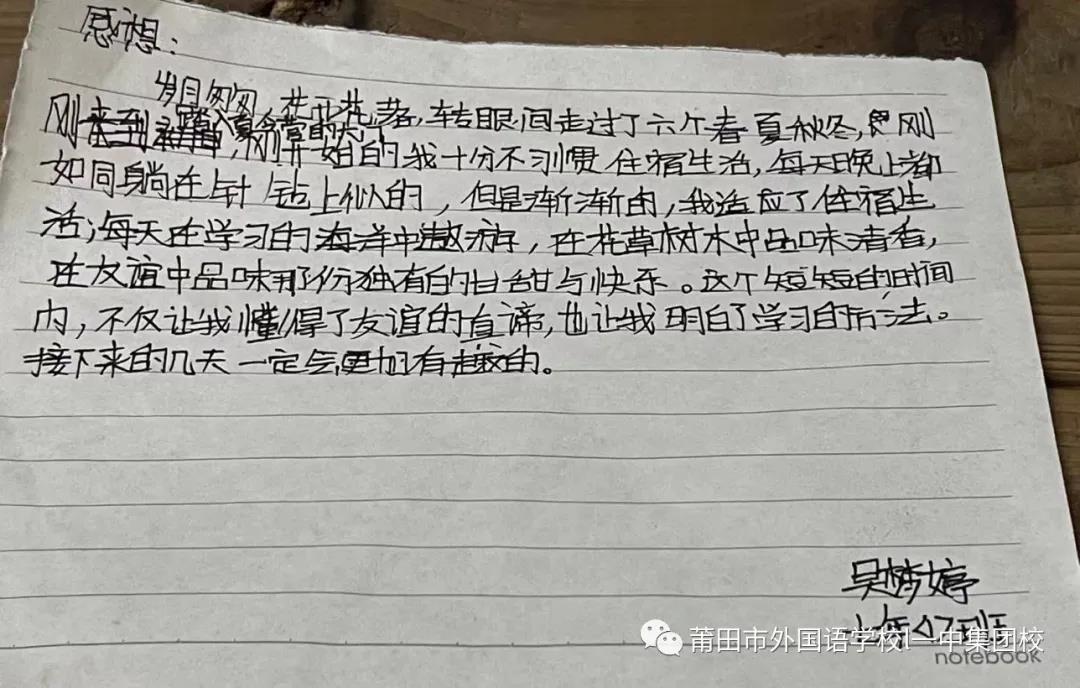 感想:
岁月匆匆,花开花落,转眼间走过了六个春夏秋冬,刚
刚踏入夏令营的大门,刚开始的我十分不习惯住宿生活,每天晚上都
如同身躺在针钻上似的,但是渐渐的,我适应了住宿生
活;每天在学习的海洋中遨游,在花草树木中品味清香,
在友谊中品味那份独有的甘甜与快乐。这个短短的时间
内,不仅让我懂得了友谊的真谛,也让我明白了学习的方法。
接下来的几天一定会更加有趣的。
吴梦婷
班
莆田市外国语学校|一中集团校
notebook